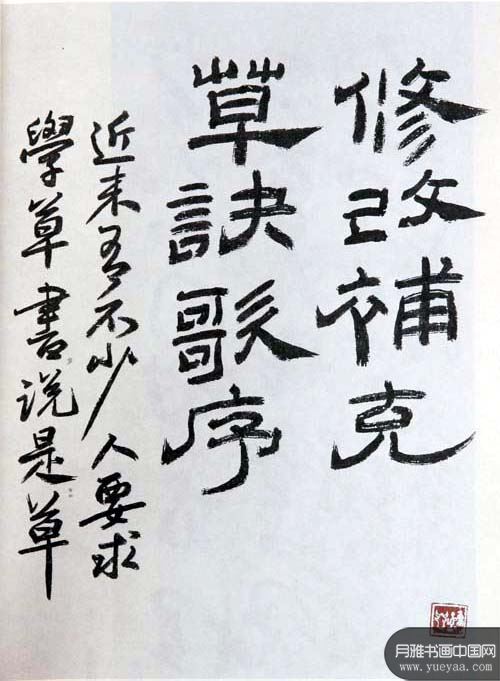 修改補充
草訣歌序
近来有不少人要求
學草書说是草
月雅书画中国网
www.yueyaa.com